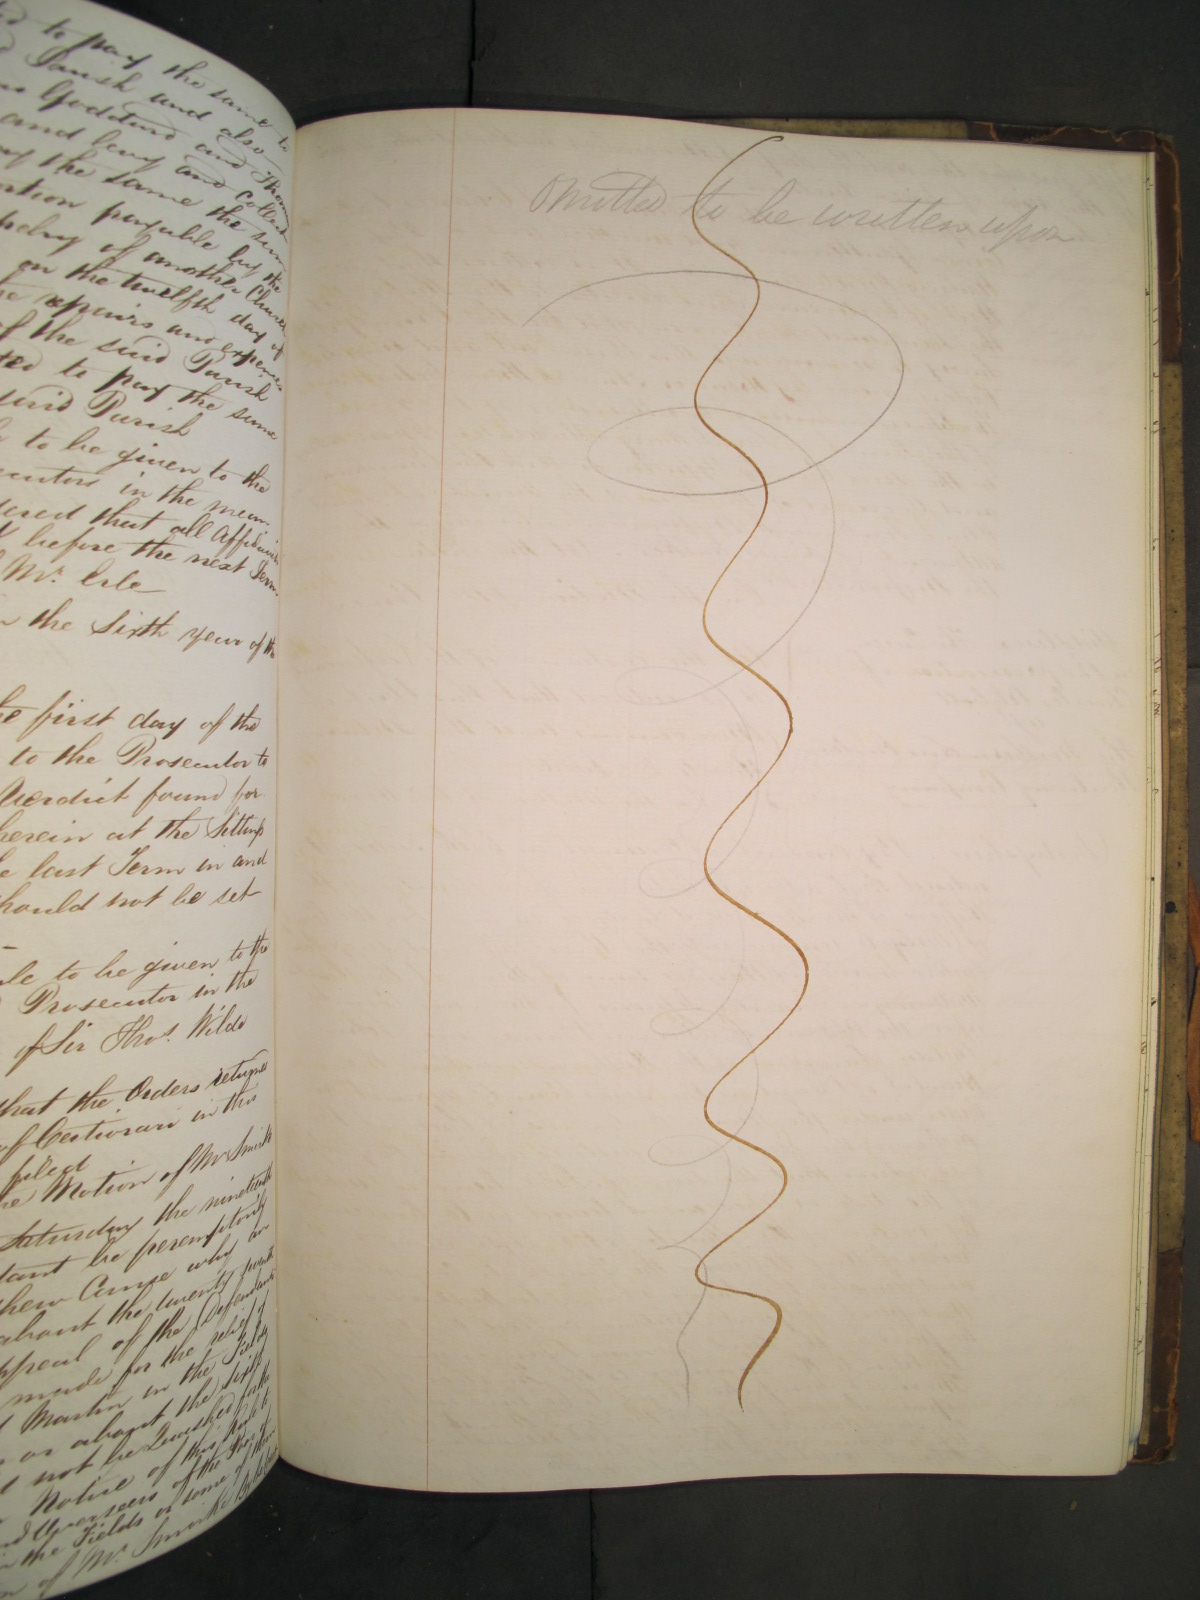 to pay the same to
Parish and also
Goddard and Thom
and levy and collect
the same the sum
portion payable by the
of another Church
on the twelfth day of
repairs and expences
of the said Parish
to pay the same
said Parish
to be given to the
in the mean
that all Affidavits
before the next Term
Mr. Erle
the Sixth year of the
the first day of the
to the Prosecutor to
Verdict found for
herein at the Sittings
last Term in and
should not be set
to be given to the
Prosecutor in the
of Sir Thos. Wilde
that the Orders returned
of Certiorari in this
filed
the Motion of Mr Smirke
Saturday the nineteenth
be peremptorily
shew Cause why an
about the twenty
appeal of the Defendants
made for the relief of
Martin in the Fields
on or about the sixth
not be Quashed
Notice of this Rule to
Overseers of the
in the Fields or some of them
of Mr. Smirke
Omitted to be written upon